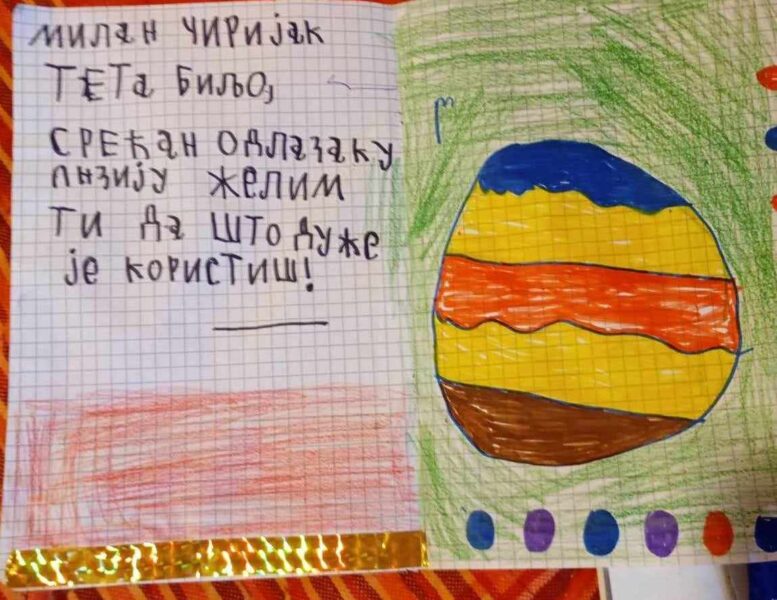 МИЛАН ЧИРИЈАК
ТЕТА БИЉО,
СРЕЋАН ОДЛАЗАК У
ПНЗИЈУ ЖЕЛИМ
ТИ ДА ШТО ДУЖЕ
ЈЕ КОРИСТИШ!